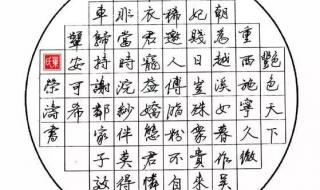 艷色天下
重西施寧久微
朝為越溪女暮作吴
妃賤日豈殊眾貴來
稀邀人傅脂粉不自
衣君寵益嬌態君憐
非當時浣紗伴莫得
車歸持謝鄰家子效
顰安可希
榮濤書